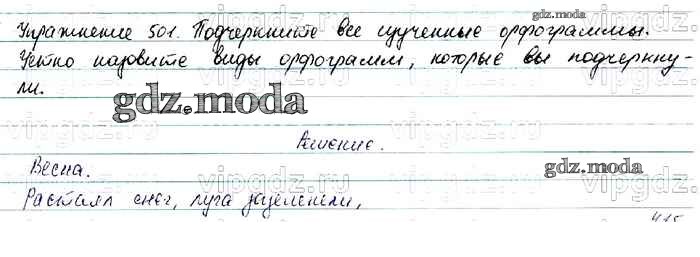 gdz.moda
Упражнение 501. Подчеркните все изученные орфограммы.
Устно назовите виды орфограмм, которые вы подчеркну-
ли.
gdz.moda
Решение.
vipgdz.ru
Весна.
gdz.moda
Растаял снег, луга зазеленели,
vipgdz.ru